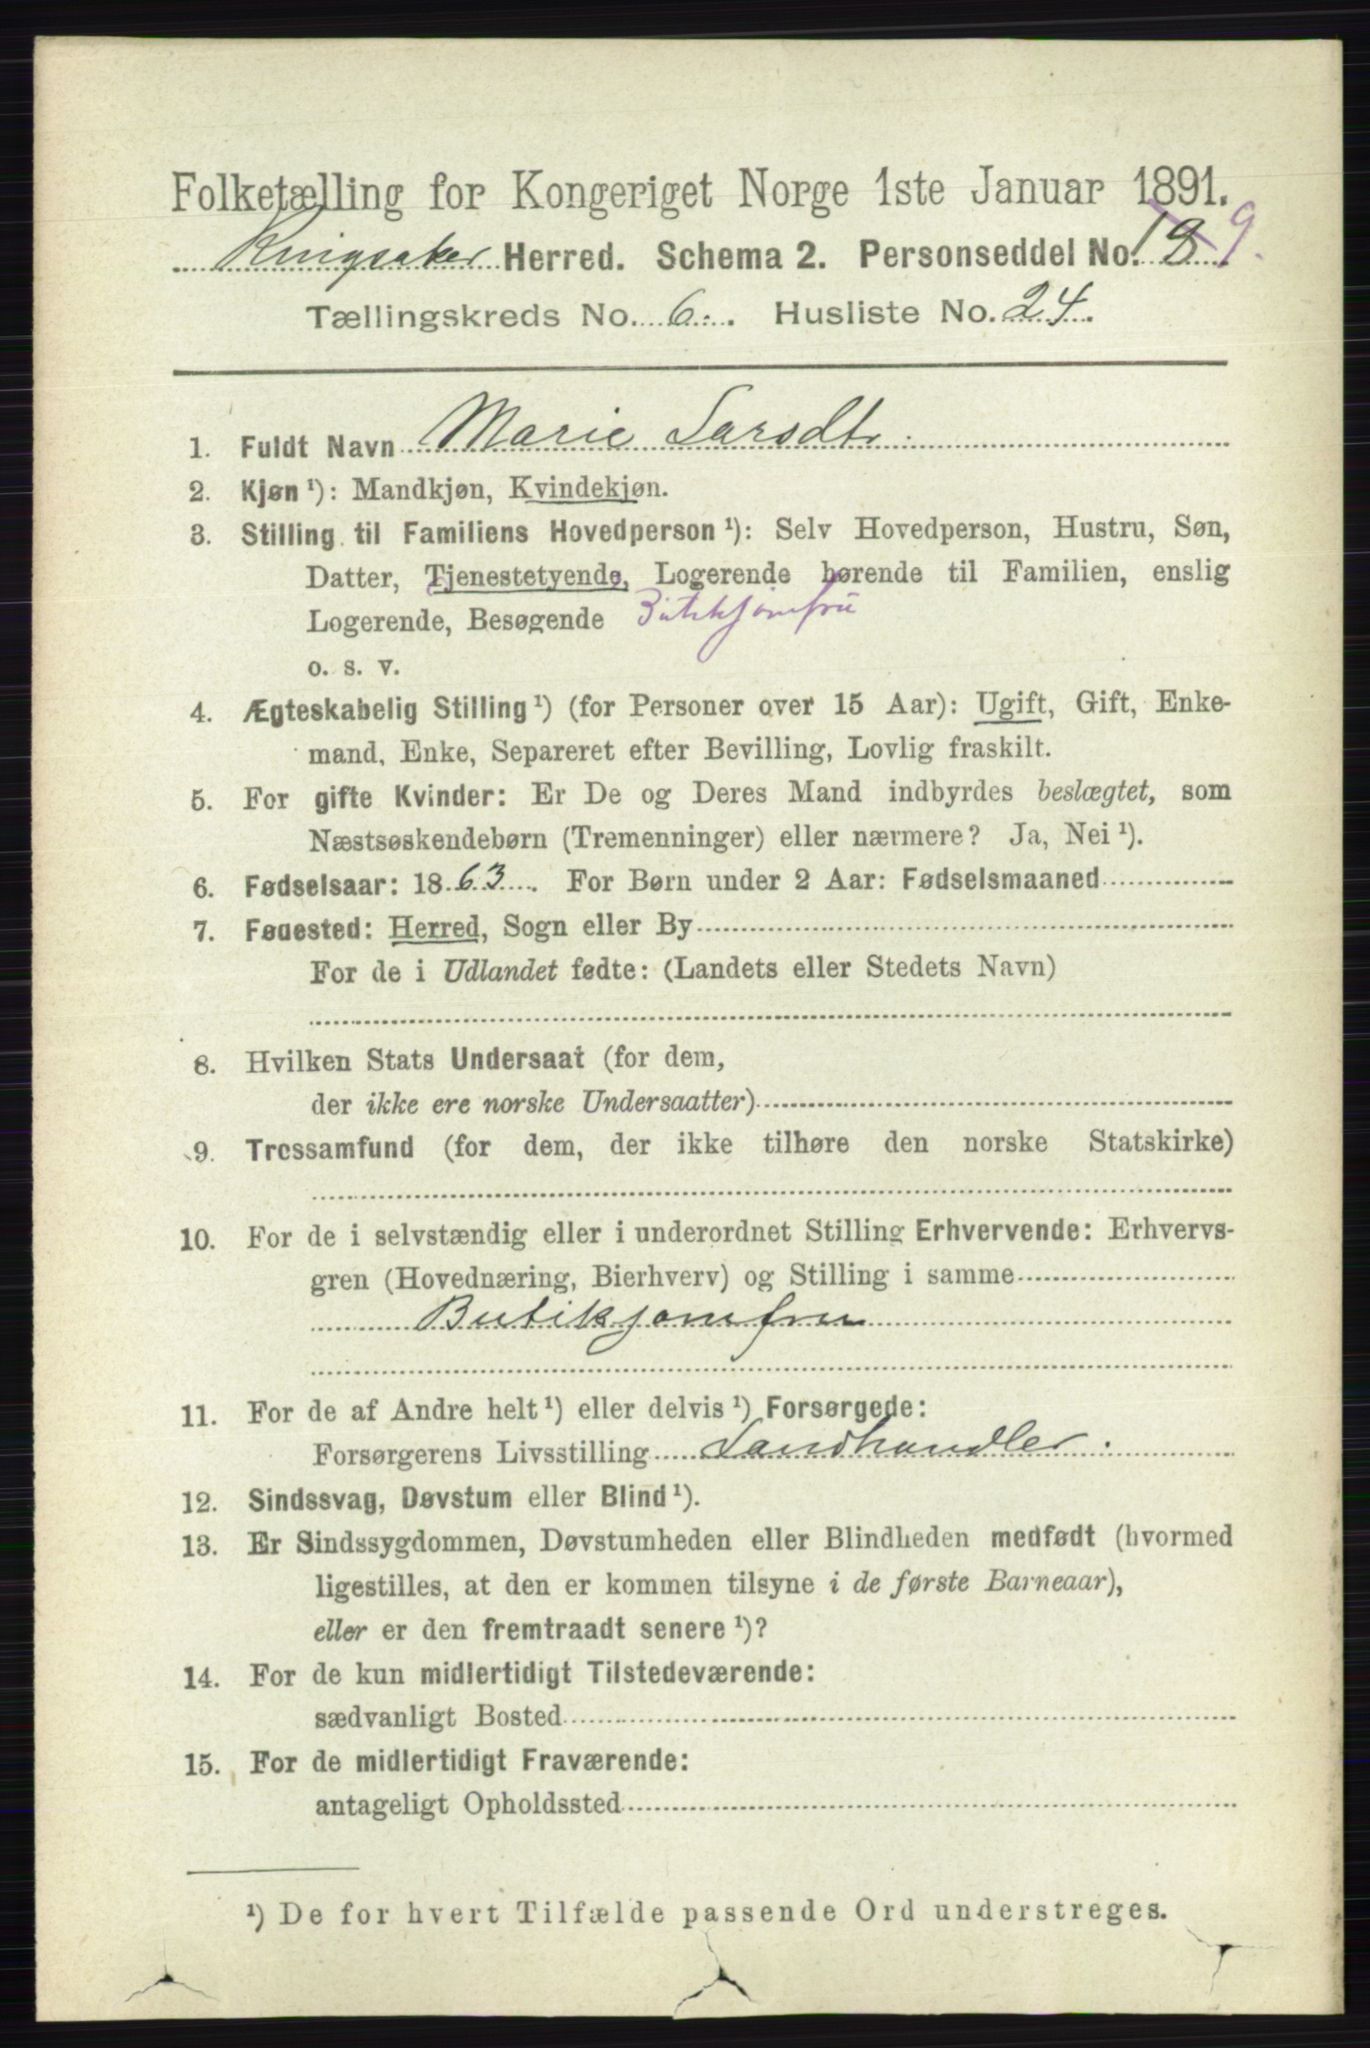 Folketælling for Kongeriget Norge 1ste Januar 1891.
Ringsaker Herred. Schema 2. Personseddel No. 18 9.
Tællingskreds No. 6. Husliste No. 24.
1. Fuldt Navn Marie Larsdtr.
2. Kjøn ¹): Mandkjøn, Kvindekjøn.
3. Stilling til Familiens Hovedperson ¹): Selv Hovedperson, Hustru, Søn,
Datter, Tjenestetyende, Logerende hørende til Familien, enslig
Logerende, Besøgende Butikkjomfru
o. s. v.
4. Ægteskabelig Stilling ¹) (for Personer over 15 Aar): Ugift, Gift, Enke-
mand, Enke, Separeret efter Bevilling, Lovlig fraskilt.
5. For gifte Kvinder: Er De og Deres Mand indbyrdes beslægtet, som
Næstsøskendebørn (Tremenninger) eller nærmere? Ja, Nei ¹).
6. Fødselsaar: 1863. For Børn under 2 Aar: Fødselsmaaned
7. Fødested: Herred, Sogn eller By
For de i Udlandet fødte: (Landets eller Stedets Navn)
8. Hvilken Stats Undersaat (for dem,
der ikke ere norske Undersaatter)
9. Trossamfund (for dem, der ikke tilhøre den norske Statskirke)
10. For de i selvstændig eller i underordnet Stilling Erhvervende: Erhvervs-
gren (Hovednæring, Bierhverv) og Stilling i samme
Butikjomfru
11. For de af Andre helt ¹) eller delvis ¹) Forsørgede:
Forsørgerens Livsstilling Landhandler.
12. Sindssvag, Døvstum eller Blind ¹).
13. Er Sindssygdommen, Døvstumheden eller Blindheden medfødt (hvormed
ligestilles, at den er kommen tilsyne i de første Barneaar),
eller er den fremtraadt senere ¹)?
14. For de kun midlertidigt Tilstedeværende:
sædvanligt Bosted
15. For de midlertidigt Fraværende:
antageligt Opholdssted
¹) De for hvert Tilfælde passende Ord understreges.